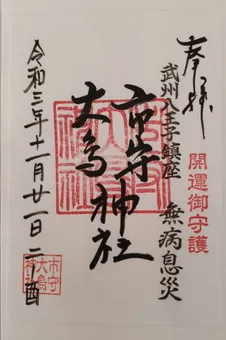 奉拝
開運御守護
武州八王子鎮座 無病息災
市守神社
大鳥神社
令和三年十一月廿一日 二ノ酉
市守
大鳥
神社